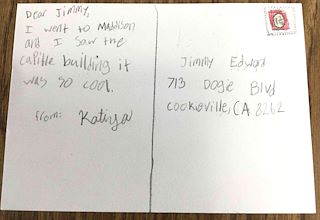 Dear Jimmy,
I went to Maddison
and I saw the
capitle building it
was so cool.
from: Katiya
Jimmy Edward
713 Dogie Blvd
cookieville, CA 8262